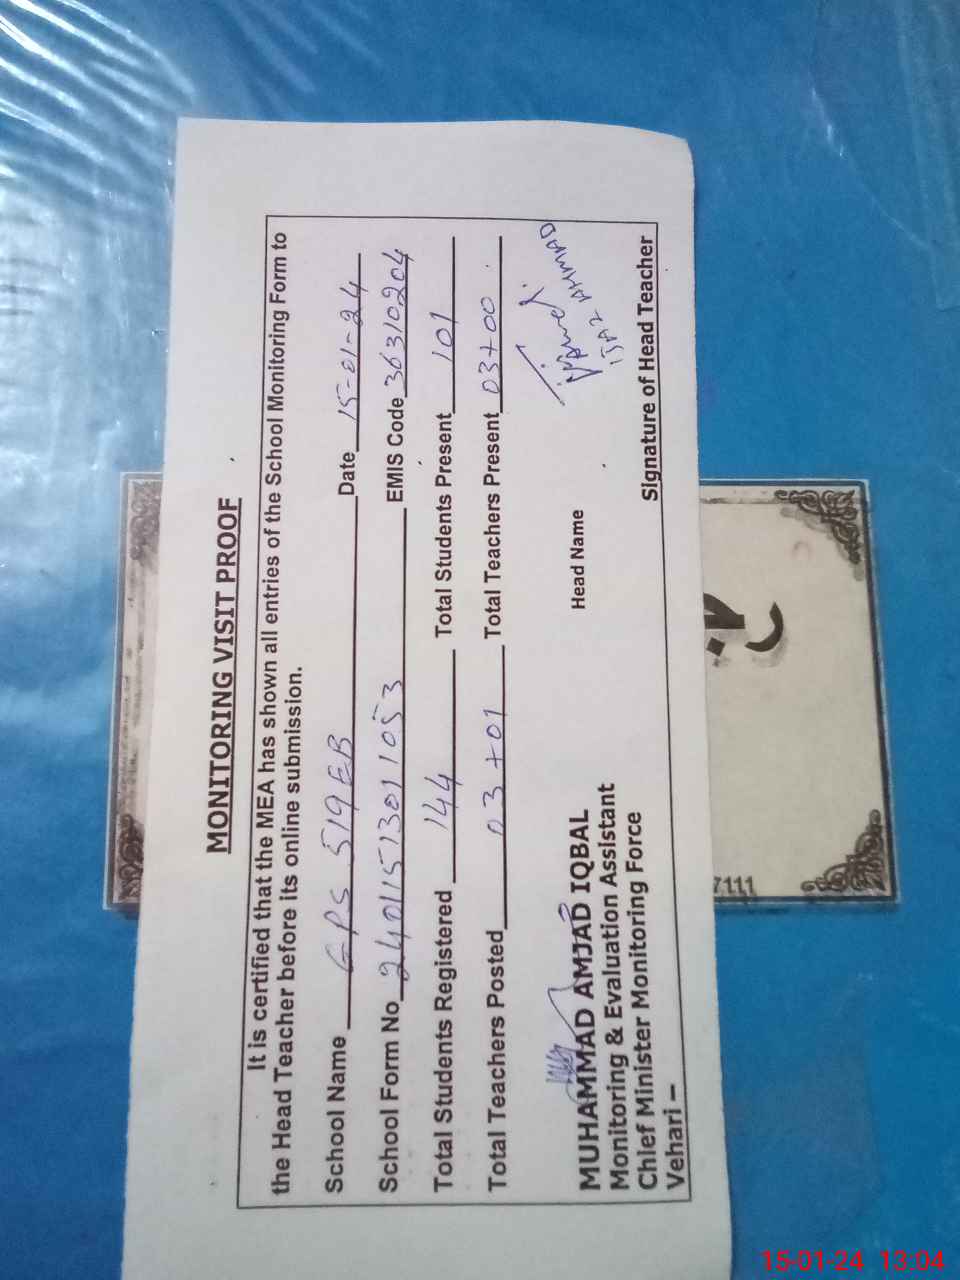 MONITORING VISIT PROOF
It is certified that the MEA has shown all entries of the School Monitoring Form to
the Head Teacher before its online submission.
School Name GPS 519 EB Date 15-01-24
School Form No 24011513011053 EMIS Code 36310204
Total Students Registered 144 Total Students Present 101
Total Teachers Posted 03+01 Total Teachers Present 03+00
Head Name
IJAZ AHMAD
MUHAMMAD AMJAD IQBAL
Monitoring & Evaluation Assistant
Chief Minister Monitoring Force
Vehari –
Signature of Head Teacher
7111
15-01-24 13:04